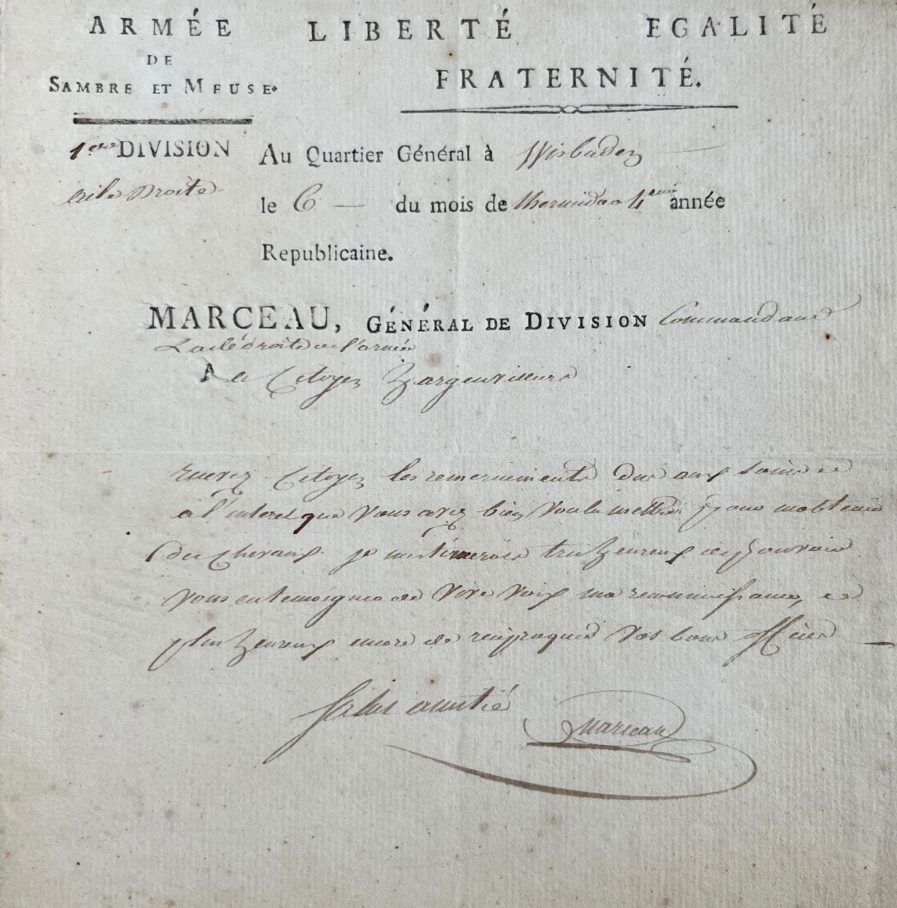 ARMÉE LIBERTÉ EGALITÉ
DE
SAMBRE ET MEUSE. FRATERNITÉ.
1ere DIVISION Au Quartier Général à Wisbaden
aile Droite
le 6 du mois de thermidor 4eme année
Republicaine.
MARCEAU, GÉNÉRAL DE DIVISION Commandant
L'aile droite de l'armée
A Citoyen
recevez Citoyen les remerciments dus aux soins et
à l'interet que vous avez bien voulu mettre pour m'obtenir
des chevaux. je m'estimerais très heureux si je pouvais
vous en temoigner de vive voix ma reconnaissance, et
plus heureux encore de reciproquer vos bons offices
Salut amitié
Marceau